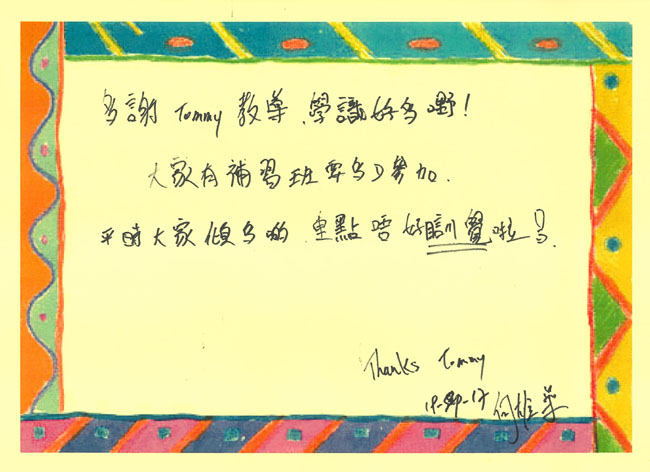 多謝 Tommy 教導,學識好多嘢!
大家有補習班要多D參加.
平時大家傾多啲,重點唔好瞓覺啦
Thanks Tommy